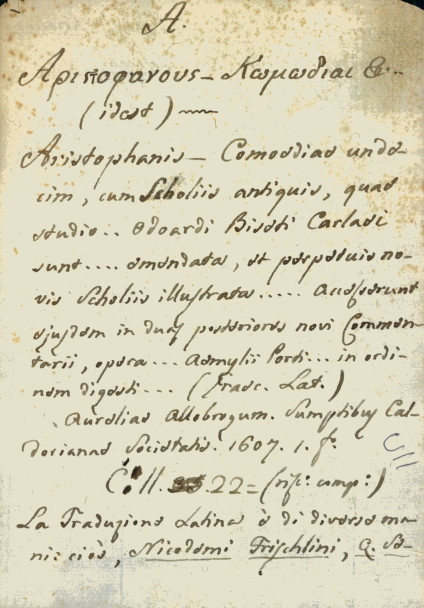 A.
Αριστοφανους – Κωμωδίαι &..
(idest)
Aristophanis – Comoediae unde-
cim, cum Scholiis antiquis, quae
studio .. Odoardi Biseti Carlaei
sunt .... emendata, et perpetuis no-
vis Scholiis illustrata ..... Accesserunt
ejusdem in duas posteriores novi Commen-
tarii, opera ... Aemylii Porti ... in ordi-
nem digesti ... (Graec. Lat.)
Aureliae Allobrogum. Sumptibus Cal-
dorianae Societatis. 1607. 1. fo.
C. II. 22 = (
La Traduzione Latina è di diverse ma-
ni: cioè, Nicodemi Frischlini, Q. Se-